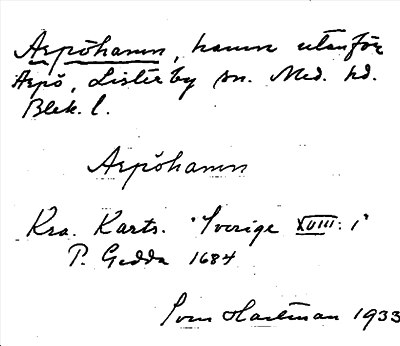 Aspöhamn, hamn utanför
Aspö, Listerby sn. Med. hd.
Blek. l.
Aspöhamn
Kra. Karts. "Sverige XVIII: 1"
P. Gedda 1684
Hartman 1933